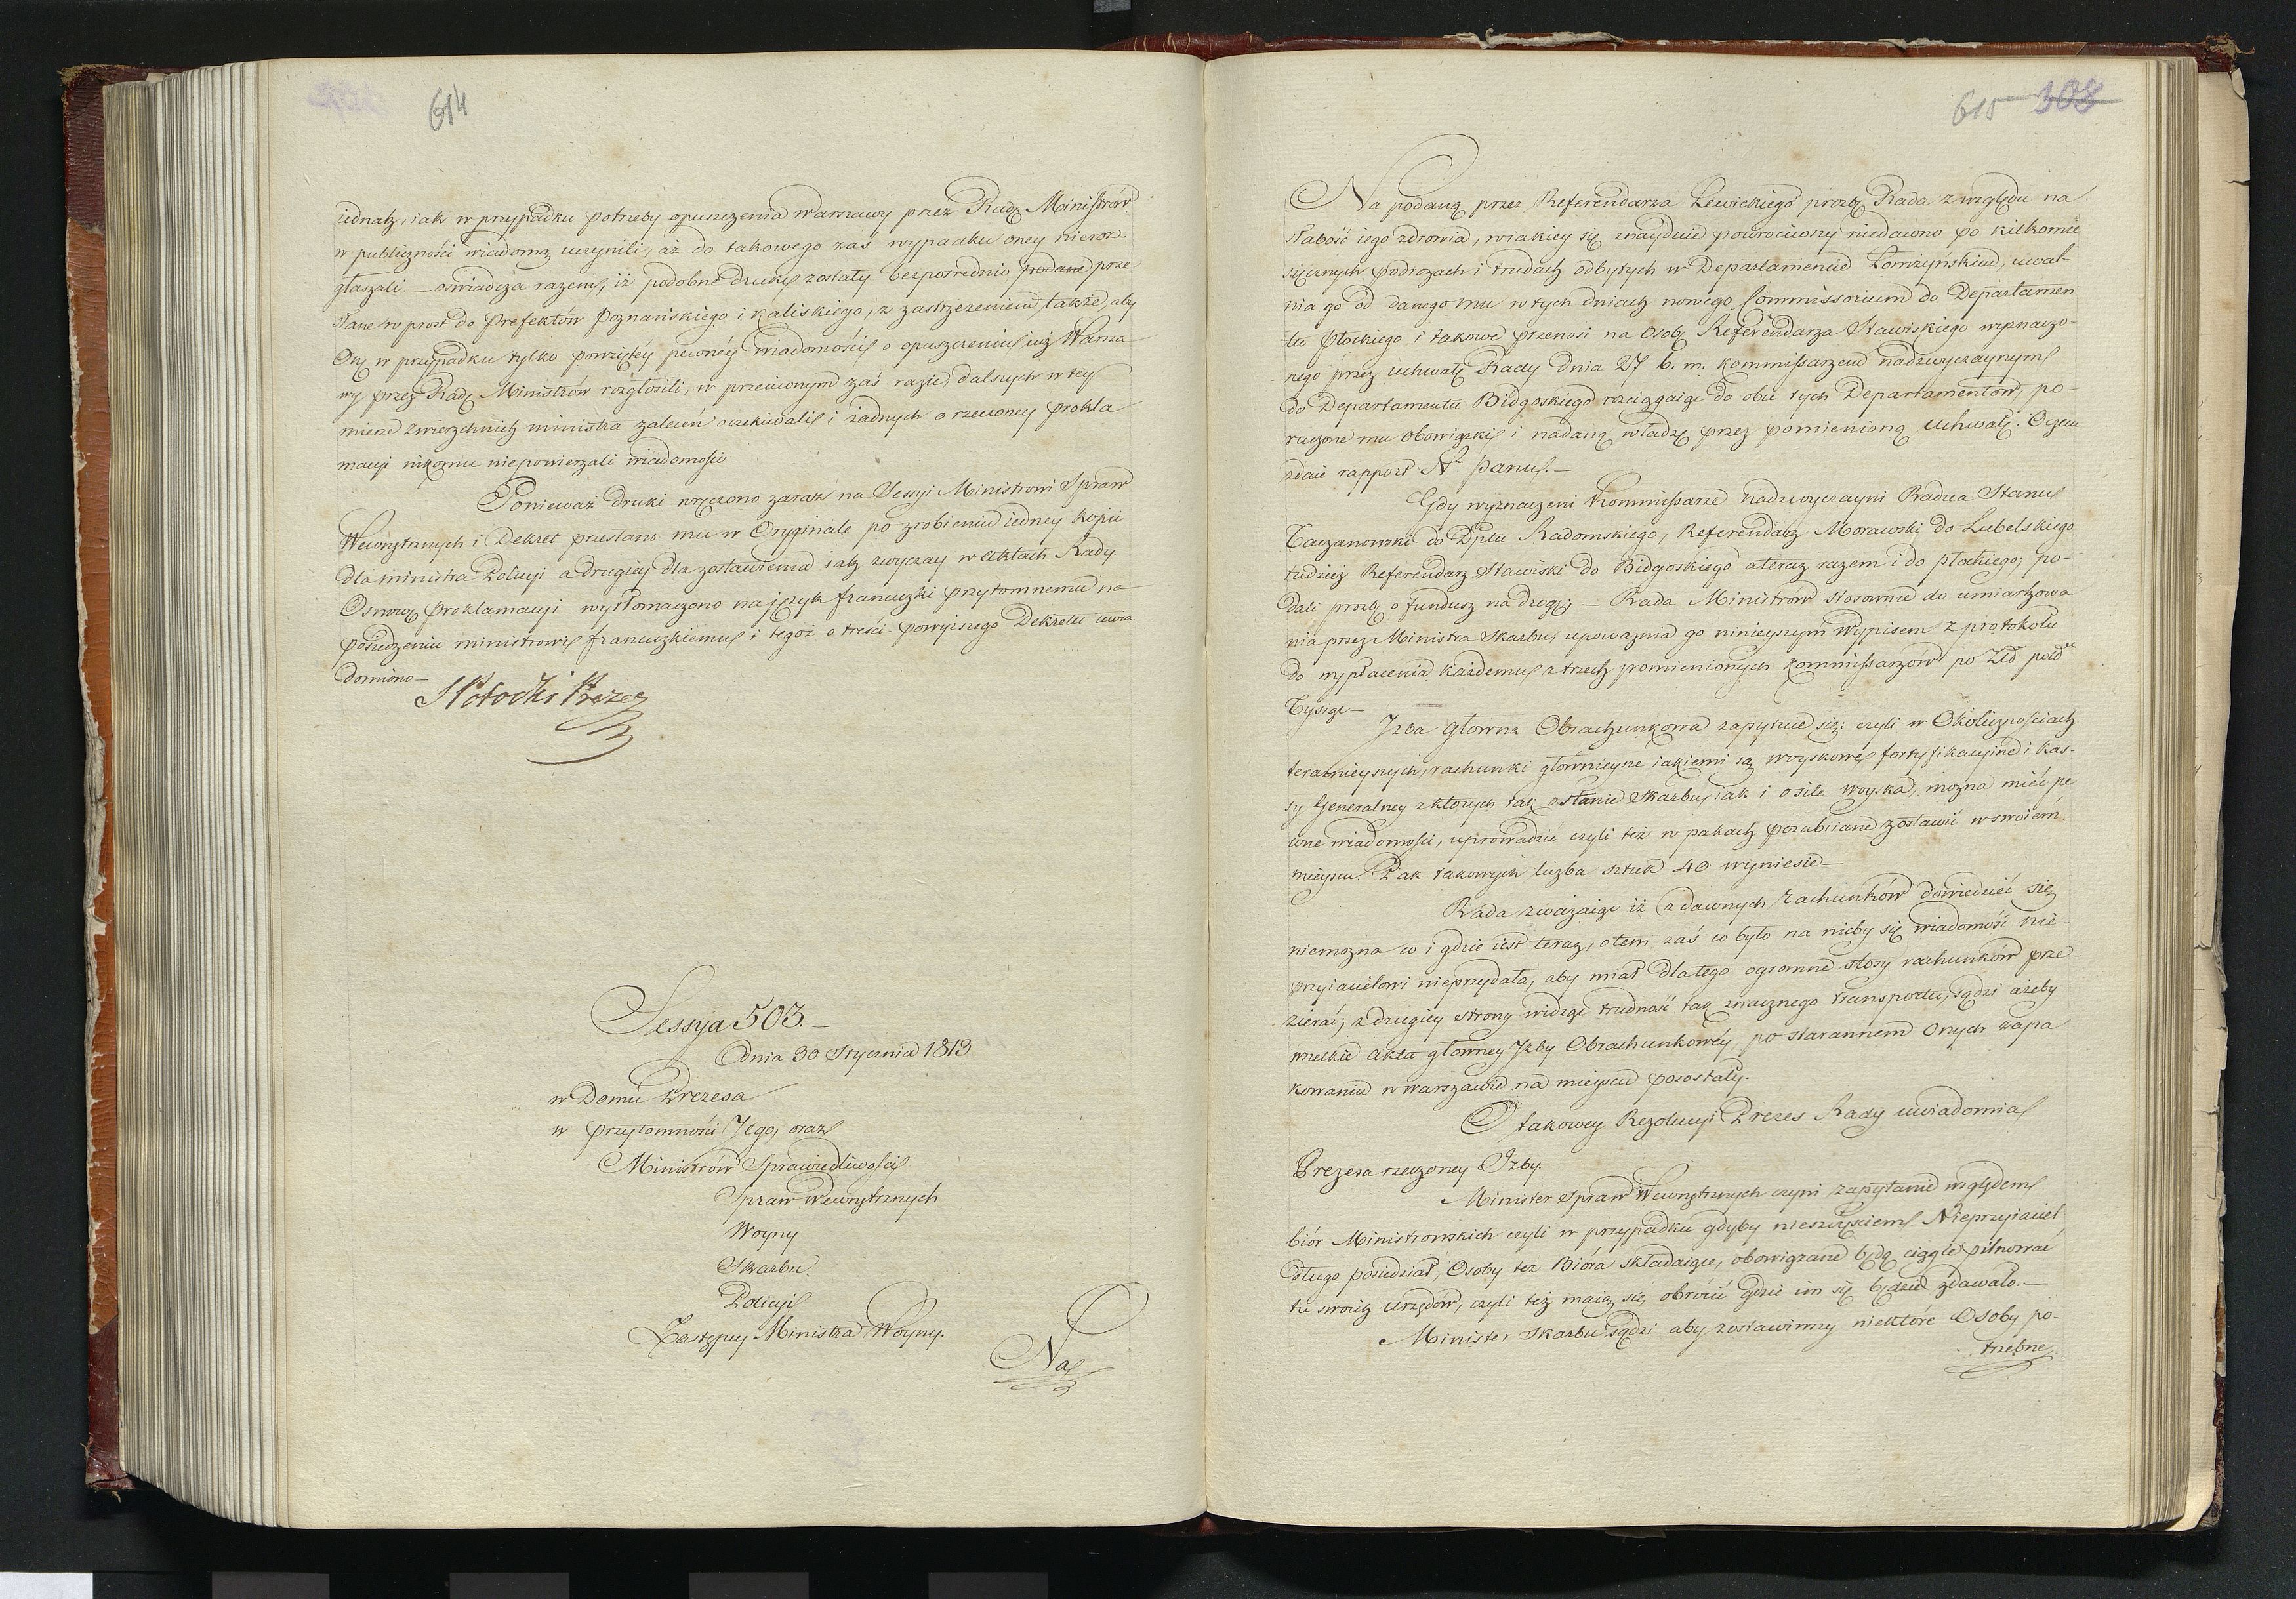 614
iednak, iak w przypadku potrzeby opuszczenia Warszawy przez Radę Ministrów
w publiczności wiadomą uczynili, aż do takowego zaś wypadku oney nieroz-
głaszali. – oświadcza razem, iż podobne druki zostały bezpośrednio podane prze
słane w prost do Prefektów Poznańskiego i Kaliskiego, z zastrzeżeniem także, aby
Oną w przypadku tylko powziętéy pewnéy wiadomości o opuszczeniu iuż Warsza
wy przez Radę Ministrów rozgłosili, w przeciwnym zaś razie, dalszych w tey
mierze zwierzchnich ministra zaleceń oczekiwali i żadnych o rzeczoney prokla
macyi nikomu niepowierzali wiadomości
Ponieważ druki wręczono zaraz na Sessyi Ministrowi Spraw
Wewnętrznych i Dekret przesłano mu w Oryginale po zrobieniu iedney kopii
dla ministra Policyi a drugiey dla zostawienia iak zwyczay w Aktach Rady
Osnowę proklamacyi wytłomaczono na język francuzki przytomnemu na
posiedzeniu ministrowi francuzkiemu i tegoż o treści powyższego Dekretu uwia
domiono –
S Potocki Prezes
Sessya 503. –
dnia 30 Stycznia 1813
w Domu Prezesa
w przytomności Jego, oraz
Ministrów Sprawiedliwości
Spraw Wewnętrznych
Woyny
Skarbu
Policyi
Zastępcy Ministra Woyny.
Na
615 308
Na podaną przez Referendarza Lewickiego prozbę Rada z względu na
słabość iego zdrowia, w iakiey się znayduie powrociwszy niedawno po kilkomie
sięcznych podrożach i trudach odbytych w Departamencie Łomżyńskim, uwal
nia go od danego mu w tych dniach nowego Commissorium do Departamen
tu Płockiego i takowe przenosi na Osobę Referendarza Stawiskiego wyznaczo-
nego przez uchwałę Rady dnia 27 b. m. kommissarzem nadzwyczaynym
do Departamentu Bidgoskiego rozciągaiąc do obu tych Departamentów, po-
ruczone mu obowiązki i nadaną władzę przez pomienioną Uchwałę. O czem
zdaie rapport N. Panu. –
Gdy wyznaczeni Kommissarze nadzwyczayni Radca Stanu
Taczanowski do Dptu Radomskiego, Referendarz Morawski do Lubelskiego
tudzież Referendarz Stawiski do Bidgoskiego a teraz razem i do płockiego, po-
dali prozbę o fundusz na drogę; – Rada Ministrów stosownie do umiarkowa
nia przez Ministra Skarbu, upoważnia go ninieyszym Wypisem z protokołu
do wypłacenia każdemu z trzech pomienionych kommissarzów po Zło pol
Tysiąc –
Izba główna Obrachunkowa zapytuie się: czyli w Okolicznościach
teraźnieyszych, rachunki głównieysze iakiemi są woyskowe fortyfikacyine i kas-
sy Generalney z których tak o stanie Skarbu, iak i o sile woyska, można mieć pe
wne wiadomości, uprowadzić czyli też w pakach pozabiiane zostawić w swoiém
mieyscu. Pak takowych liczba sztuk 40 wyniesie –
Rada zważaiąc iż z dawnych rachunków dowiedzieć się
niemożna co i gdzie iest teraz, o tem zaś co było na nicby się wiadomość nie-
przyiacielowi nieprzydała, aby miał dlatego ogromne stosy rachunków prze-
zierać, z drugiey strony widząc trudność tak znacznego transportu, sądzi ażeby
wszelkie akta główney Izby Obrachunkowéy, po starannem onych zapa
kowaniu w Warszawie na mieyscu pozostały.
O takowey Rezolucyi Prezes Rady uwiadomia
Prezesa rzeczoney Izby.
Minister Spraw Wewnętrznych czyni zapytanie względem
biór Ministrowskich czyli w przypadku gdyby nieszczęściem Nieprzyiaciel
długo posiedział, Osoby te Biora składaiące, obowiązane będą ciągle pilnować
tu swoich urzędów, czyli też maią się obrócić gdzie im się będzie zdawało. –
Minister Skarbu sądzi aby zostawiwszy niektóre Osoby po-
trzebne